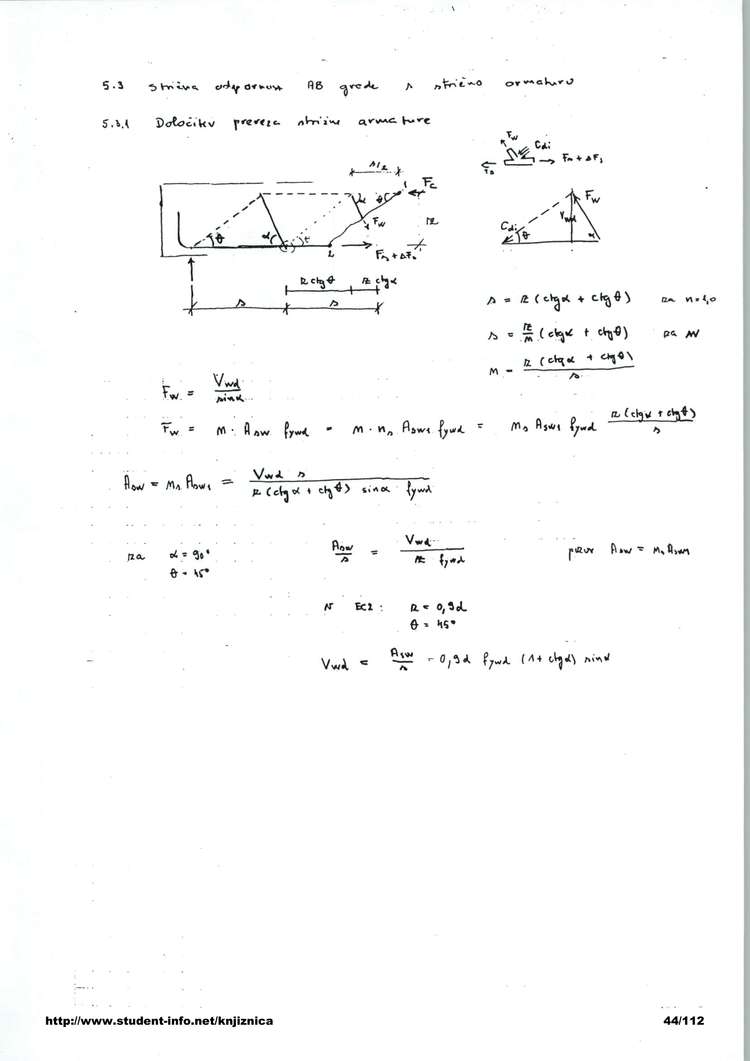 5.3 Strižna odpornost AB grede s strižno armaturo
5.3.1 Določitev prereza strižne armature
F_w
C_di
T_s
F_s + ΔF_s
s/2
1
F_c
α
θ
F_w
z
θ
α
2
F_s + ΔF_s
z ctgθ
z ctgα
s
s
F_w
V_wd
C_di
θ
α
s = z (ctgα + ctgθ) za n = 1,0
s = z/n (ctgα + ctgθ) za n
n = z (ctgα + ctgθ)/s
F_w = V_wd/sinα
F_w = n · A_sw f_ywd = n · n_s A_sw1 f_ywd = n_s A_sw1 f_ywd z (ctgα + ctgθ)/s
A_sw = n_s A_sw1 = V_wd s/z (ctgα + ctgθ) sinα f_ywd
za α = 90°
θ = 45°
A_sw/s = V_wd/z f_ywd
prerez A_sw = n_s A_sw1
v EC2: z = 0,9d
θ = 45°
V_wd = A_sw/s · 0,9d f_ywd (1 + ctgα) sinα
http://www.student-info.net/knjiznica
44/112